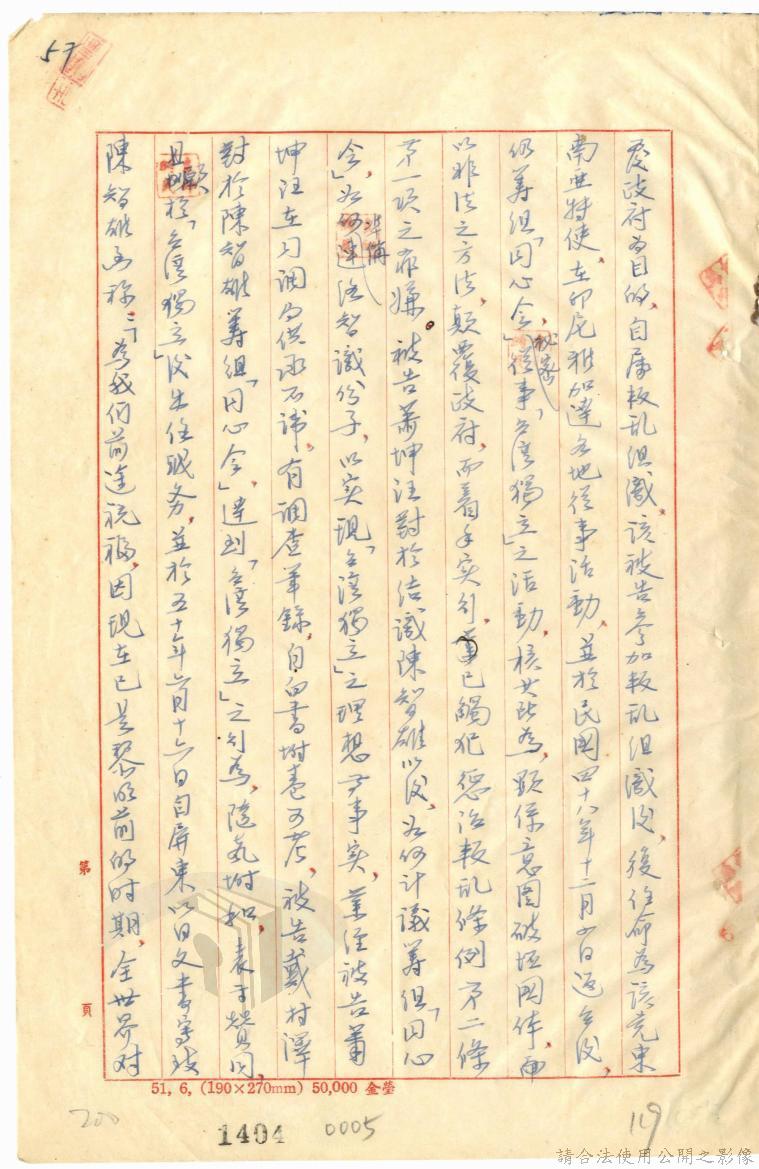 57
覆政府为目的,自属叛乱组織,该被告参加叛乱组織後,後任命為该党東
南亚特使,在印尼雅加達各地從事活動,並於民國四十八年十二月 日返台後,
仍籌组「同心会」秘密從事「台湾獨立」之活動,核其所為,顯係意图破坏國体,而
以非法之方法,颠覆政府,而着手实行,已觸犯惩治叛乱條例第二條
第一項之罪嫌。被告蕭坤旺對於结識陳智雄以後,如何计議籌组「同心
会,」如何準備連络智識份子,以实现「台湾獨立」之理想等事实,業经被告蕭
坤旺在 调 供承不諱,有调查筆錄,自白書附卷可考,被告戴村澤
對於陳智雄籌组「同心会」達到「台湾獨立」之行為,随気附和,表示贊同,
且願於「台湾獨立」後出任職务,並於五十年六月十六日自屏東以日文書寫致
陳智雄函称:「為我们前途祝福,因现在已是黎明前的时期,全世界对
第
頁
51, 6, (190×270mm) 50,000 金瑩
200
1404
0005
119
請合法使用公開之影像